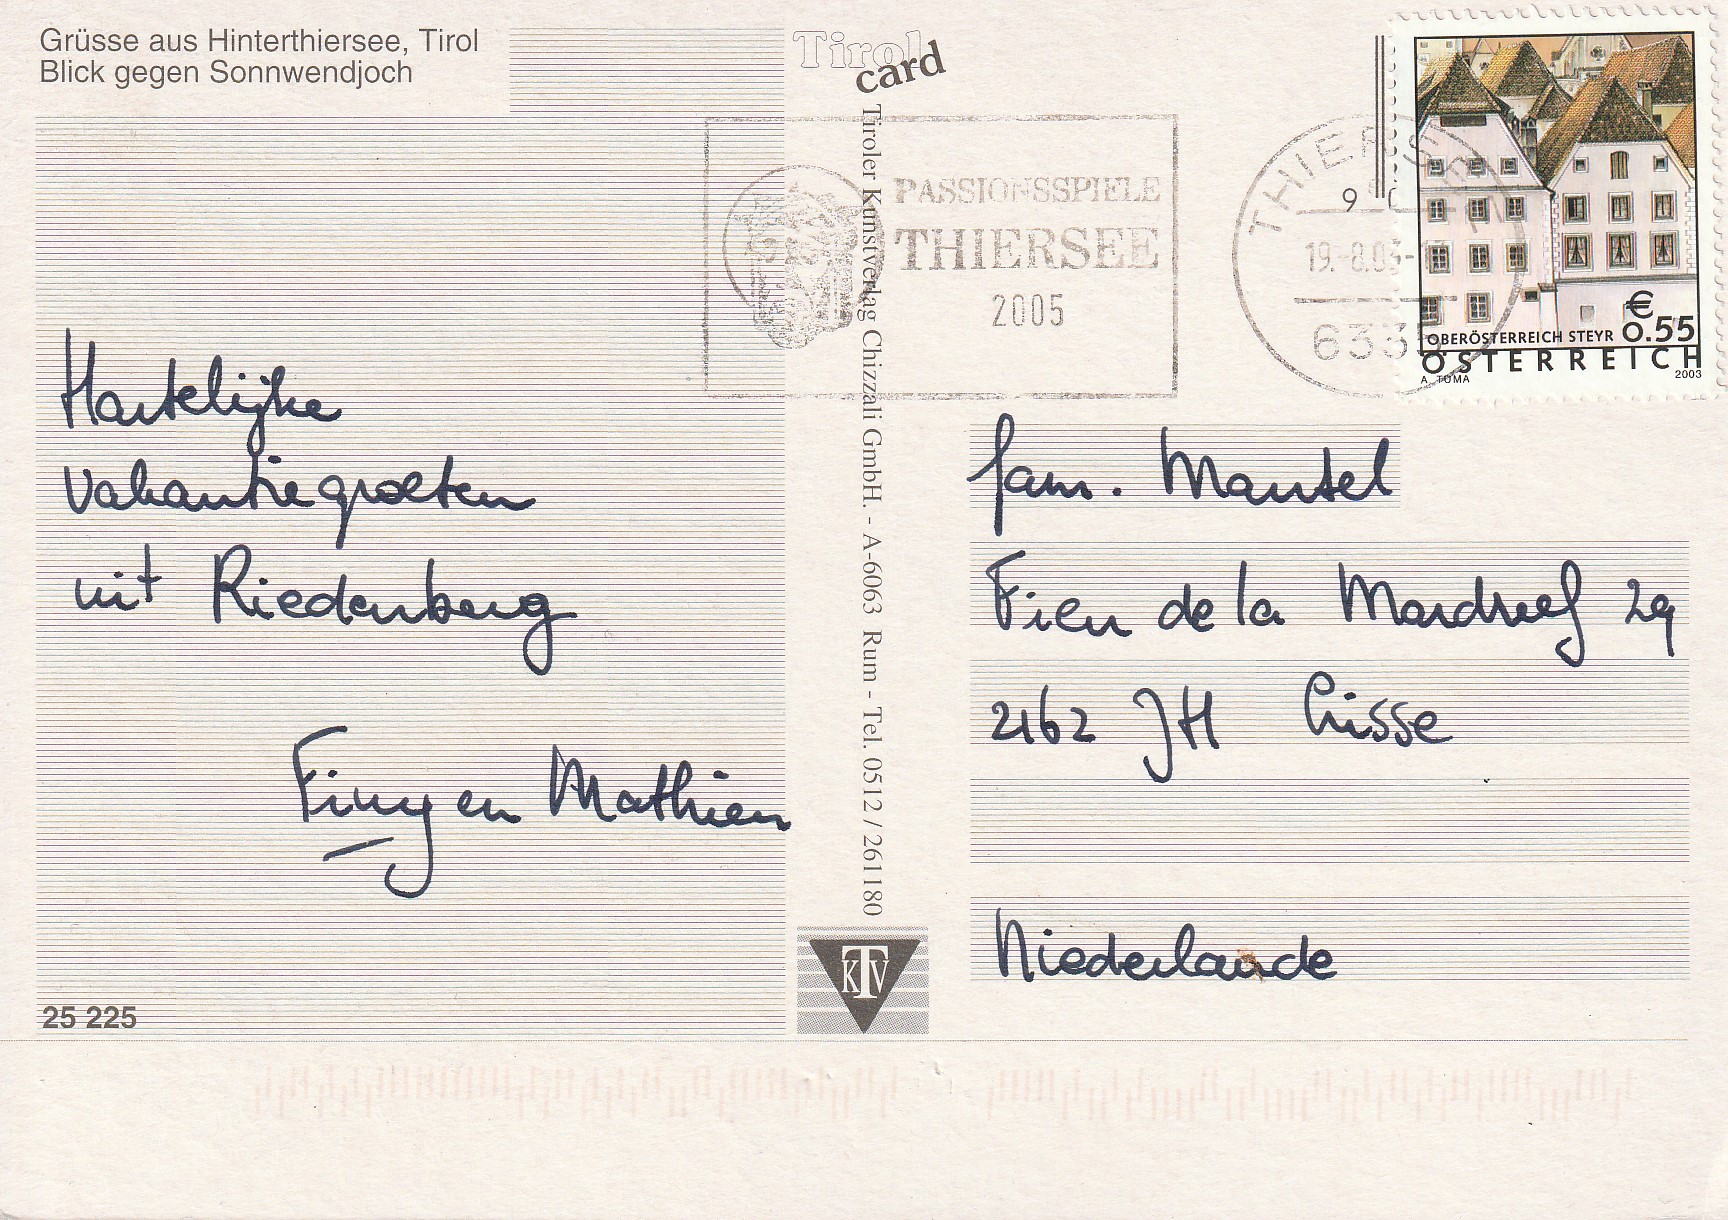 Grüsse aus Hinterthiersee, Tirol
Blick gegen Sonnwendjoch
Tirol
card
Tiroler Kunstverlag Chizzali GmbH. - A-6063 Rum - Tel. 0512 / 261180
PASSIONSSPIELE
THIERSEE
2005
THIERSEE
19.-8.03-1
633
€
0.55
OBERÖSTERREICH STEYR
ÖSTERREICH
A. TUMA
2003
Hartelijke
vakantiegroeten
uit Riedenberg
Finy en Mathieu
fam. Mantel
Fien de la Mardreef 29
2162 JH Lisse
Niederlande
KTV
25 225